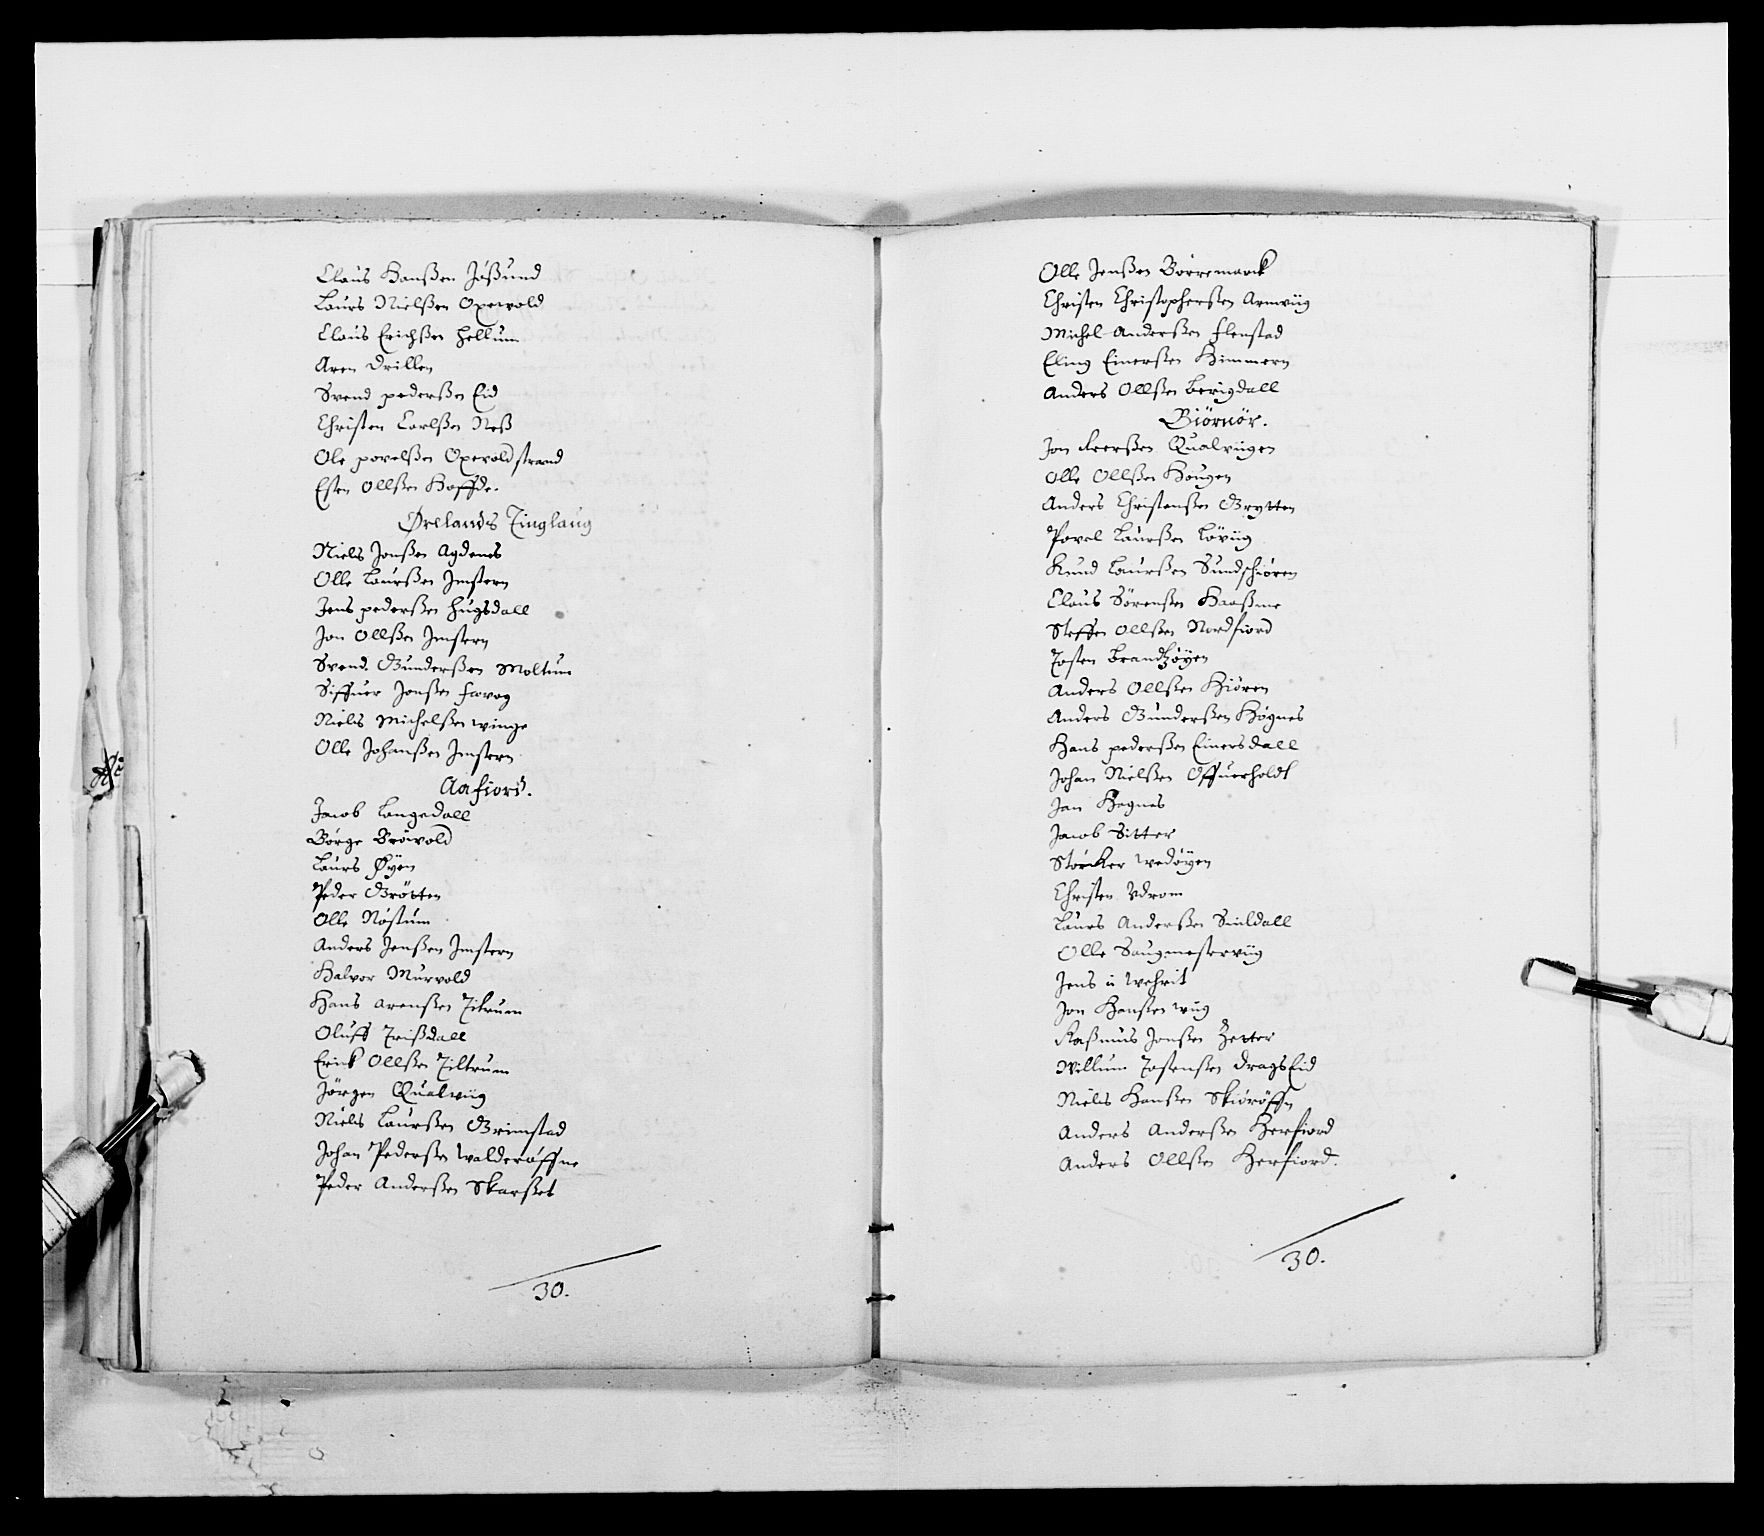 Claus Hanßen Jößund
Laurs Nielßen Opewold
Claus Erichßen Hellum
Aren Drillen
Svend pederßen Eid
Christen Carlßen Neß
Ole povelßen Opevoldstrand
Esten Ollßen Hoffde.
Ørelands Tinglaug
Niels Jonßen Agdenes
Olle Laurßen Imstern
Jens pederßen Hugsdall
Jon Ollßen Imstern
Svend Gunderßen Moltum
Siffuer Jonßen
Niels Michelßen winge
Olle Johanßen Imstern
Aafiord.
Jacob Langedall
Börge Bröwold
Laurs Øyen
Peder Grötten
Olle Nöstum
Anders Jenßen Imstern
Halvor Murvold
Hans Arenßen Tiltrum
Oluff Trißdall
Erick Ollßen Tiltrum
Jörgen Qualviig
Niels Laurßen Grimstad
Johan Pederßen Walderöffne
Peder Anderßen Skarßet
30.
Olle Jenßen Börremarck
Christen Christopherßen Arnviig
Michel Anderßen Flenstad
Eling Einerßen Himmern
Anders Ollßen Berigdall
Biörnör.
Jon Iverßen Qualviigen
Olle Ollßen Hougen
Anders Christenßen Grytten
Povel Laurßen Löviig
Knud Laurßen Sundschiören
Claus Sörenßen
Steffen Ollßen Nordfiord
Tosten Brandtzöyen
Anders Ollßen Kiören
Anders Gunderßen Högnes
Hans pederßen Einersdall
Johan Nielßen Offuerholdt
Jan Hegnes
Jacob Sitter
Störcker Wedöyen
Christen Vdrom
Laurs Anderßen Sinldall
Olle Saugmesterviig
Jens i Wehrit
Jon Hanßen wiig
Raßmus Jonßen Zetter
Willum Tostenßen DragsEid
Niels Hanßen Skiöröffn
Anders Anderßen Herfiord
Anders Ollßen Herfiord.
30.